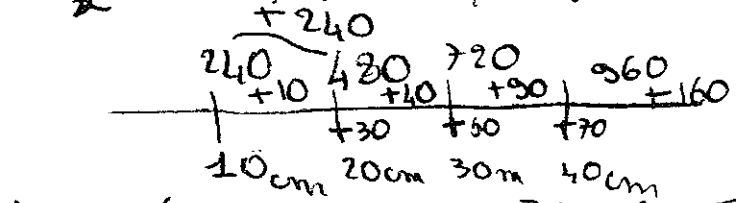 + 240
240 480 720 960
+10 +40 +90 +160
+30 +50 +70
10cm 20cm 30m 40cm